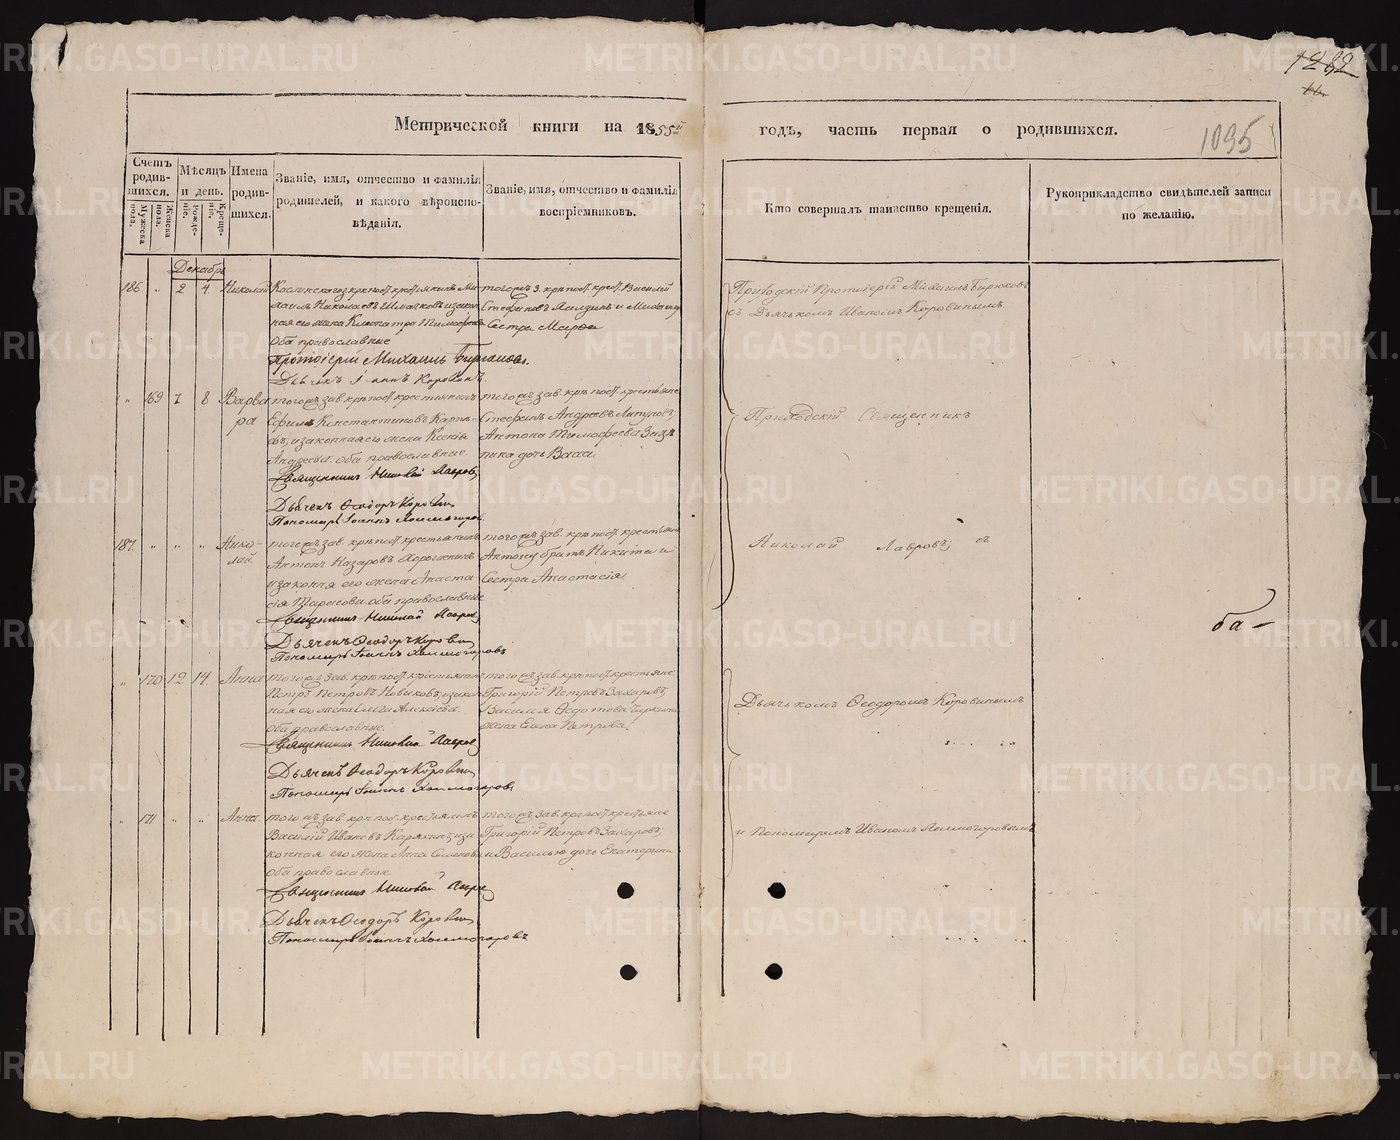 1282
1095
Метрической книги на 1855й годъ, часть первая о родившихся.
Счетъ родившихся.
Мужеска пола.
Женска пола.
Мѣсяцъ и день.
Рожденіе.
Крещеніе.
Имена родившихся.
Званіе, имя, отчество и фамилія родителей, и какого вѣроисповѣданія.
Званіе, имя, отчество и фамилія воспріемниковъ.
Кто совершалъ таинство крещенія.
Рукоприкладство свидѣтелей записи по желанію.
Декабрь
186 " 2 4 Николай
оба православные
Протоіерей Михаилъ
Дьячекъ Іоаннъ Коровинъ
Сестра Марѳа
Приходскій Протоіерей Михаилъ Бирюковъ
съ Дьячькомъ Иваномъ Коровинымъ
" 169 7 8 Варвара
того жъ зав. крѣпост. крестьянинъ
Ефимъ Константиновъ
законная его жена Ксенія
Андреева. оба православные
Священникъ Николай Лавровъ
Дьячекъ Ѳеодоръ Коровинъ
Пономарь Іоаннъ Холмогоровъ
того жъ зав. крѣпост. крестьяне
Стефанъ Андреевъ
Антона Тимофеева
дочь Васса
Приходскій Священникъ
187. " " " Николай
того жъ зав. крѣпост. крестьянинъ
Антонъ Назаровъ
законная его жена Анастасія
Тарасова. оба православные
Священникъ Николай Лавровъ
Дьячекъ Ѳеодоръ Коровинъ
Пономарь Іоаннъ Холмогоровъ
того жъ зав. крѣпост. крестьянинъ
Антону братъ Никита и
Сестра Анастасія
Николай Лавровъ съ
ба-
" 170 12 14 Анна
того жъ зав. крѣпост. крестьянинъ
Петръ Петровъ Новиковъ, законная
его жена Ольга Алексѣева.
оба православные.
Священникъ Николай Лавровъ
Дьячекъ Ѳеодоръ Коровинъ
Пономарь Іоаннъ Холмогоровъ
того жъ зав. крѣпост. крестьяне
Григорій Петровъ Захаровъ,
Василія Ѳедотова
жена Елена Петрова.
Дьячькомъ Ѳеодоромъ Коровинымъ
" 171 " " Анна
того жъ зав. крѣпост. крестьянинъ
Василій Ивановъ Карякинъ, законная
его жена Анна Семенова
оба православные
Священникъ Николай Лавровъ
Дьячекъ Ѳеодоръ Коровинъ
Пономарь Іоаннъ Холмогоровъ
того жъ зав. крѣпост. крестьяне
Григорій Петровъ Захаровъ,
и Василью дочь Екатерина
и Пономаремъ Иваномъ Холмогоровымъ
METRIKI.GASO-URAL.RU